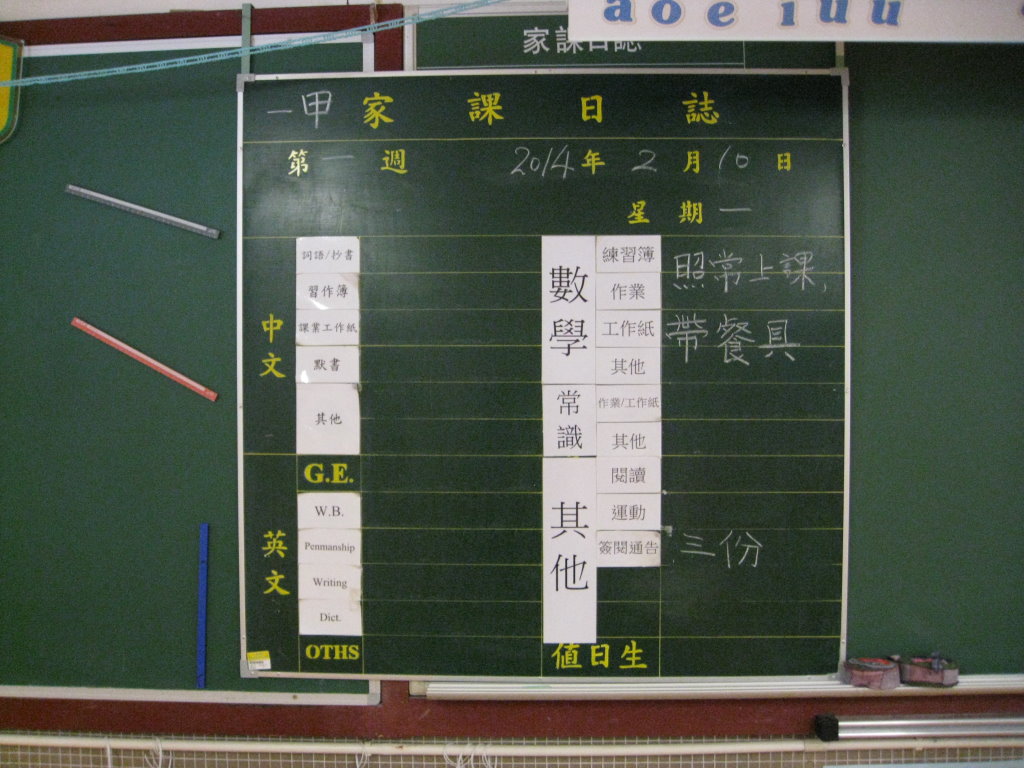 aoeiuü
家課日誌
一甲 家課日誌
第一週 2014年2月10日
星期一
中文
詞語/抄書
習作簿
課業工作紙
默書
其他
英文
G.E.
W.B.
Penmanship
Writing
Dict.
OTHS
數學
練習簿 照常上課,
作業
工作紙 帶餐具
其他
常識
作業/工作紙
其他
其他
閱讀
運動
簽閱通告 三份
值日生